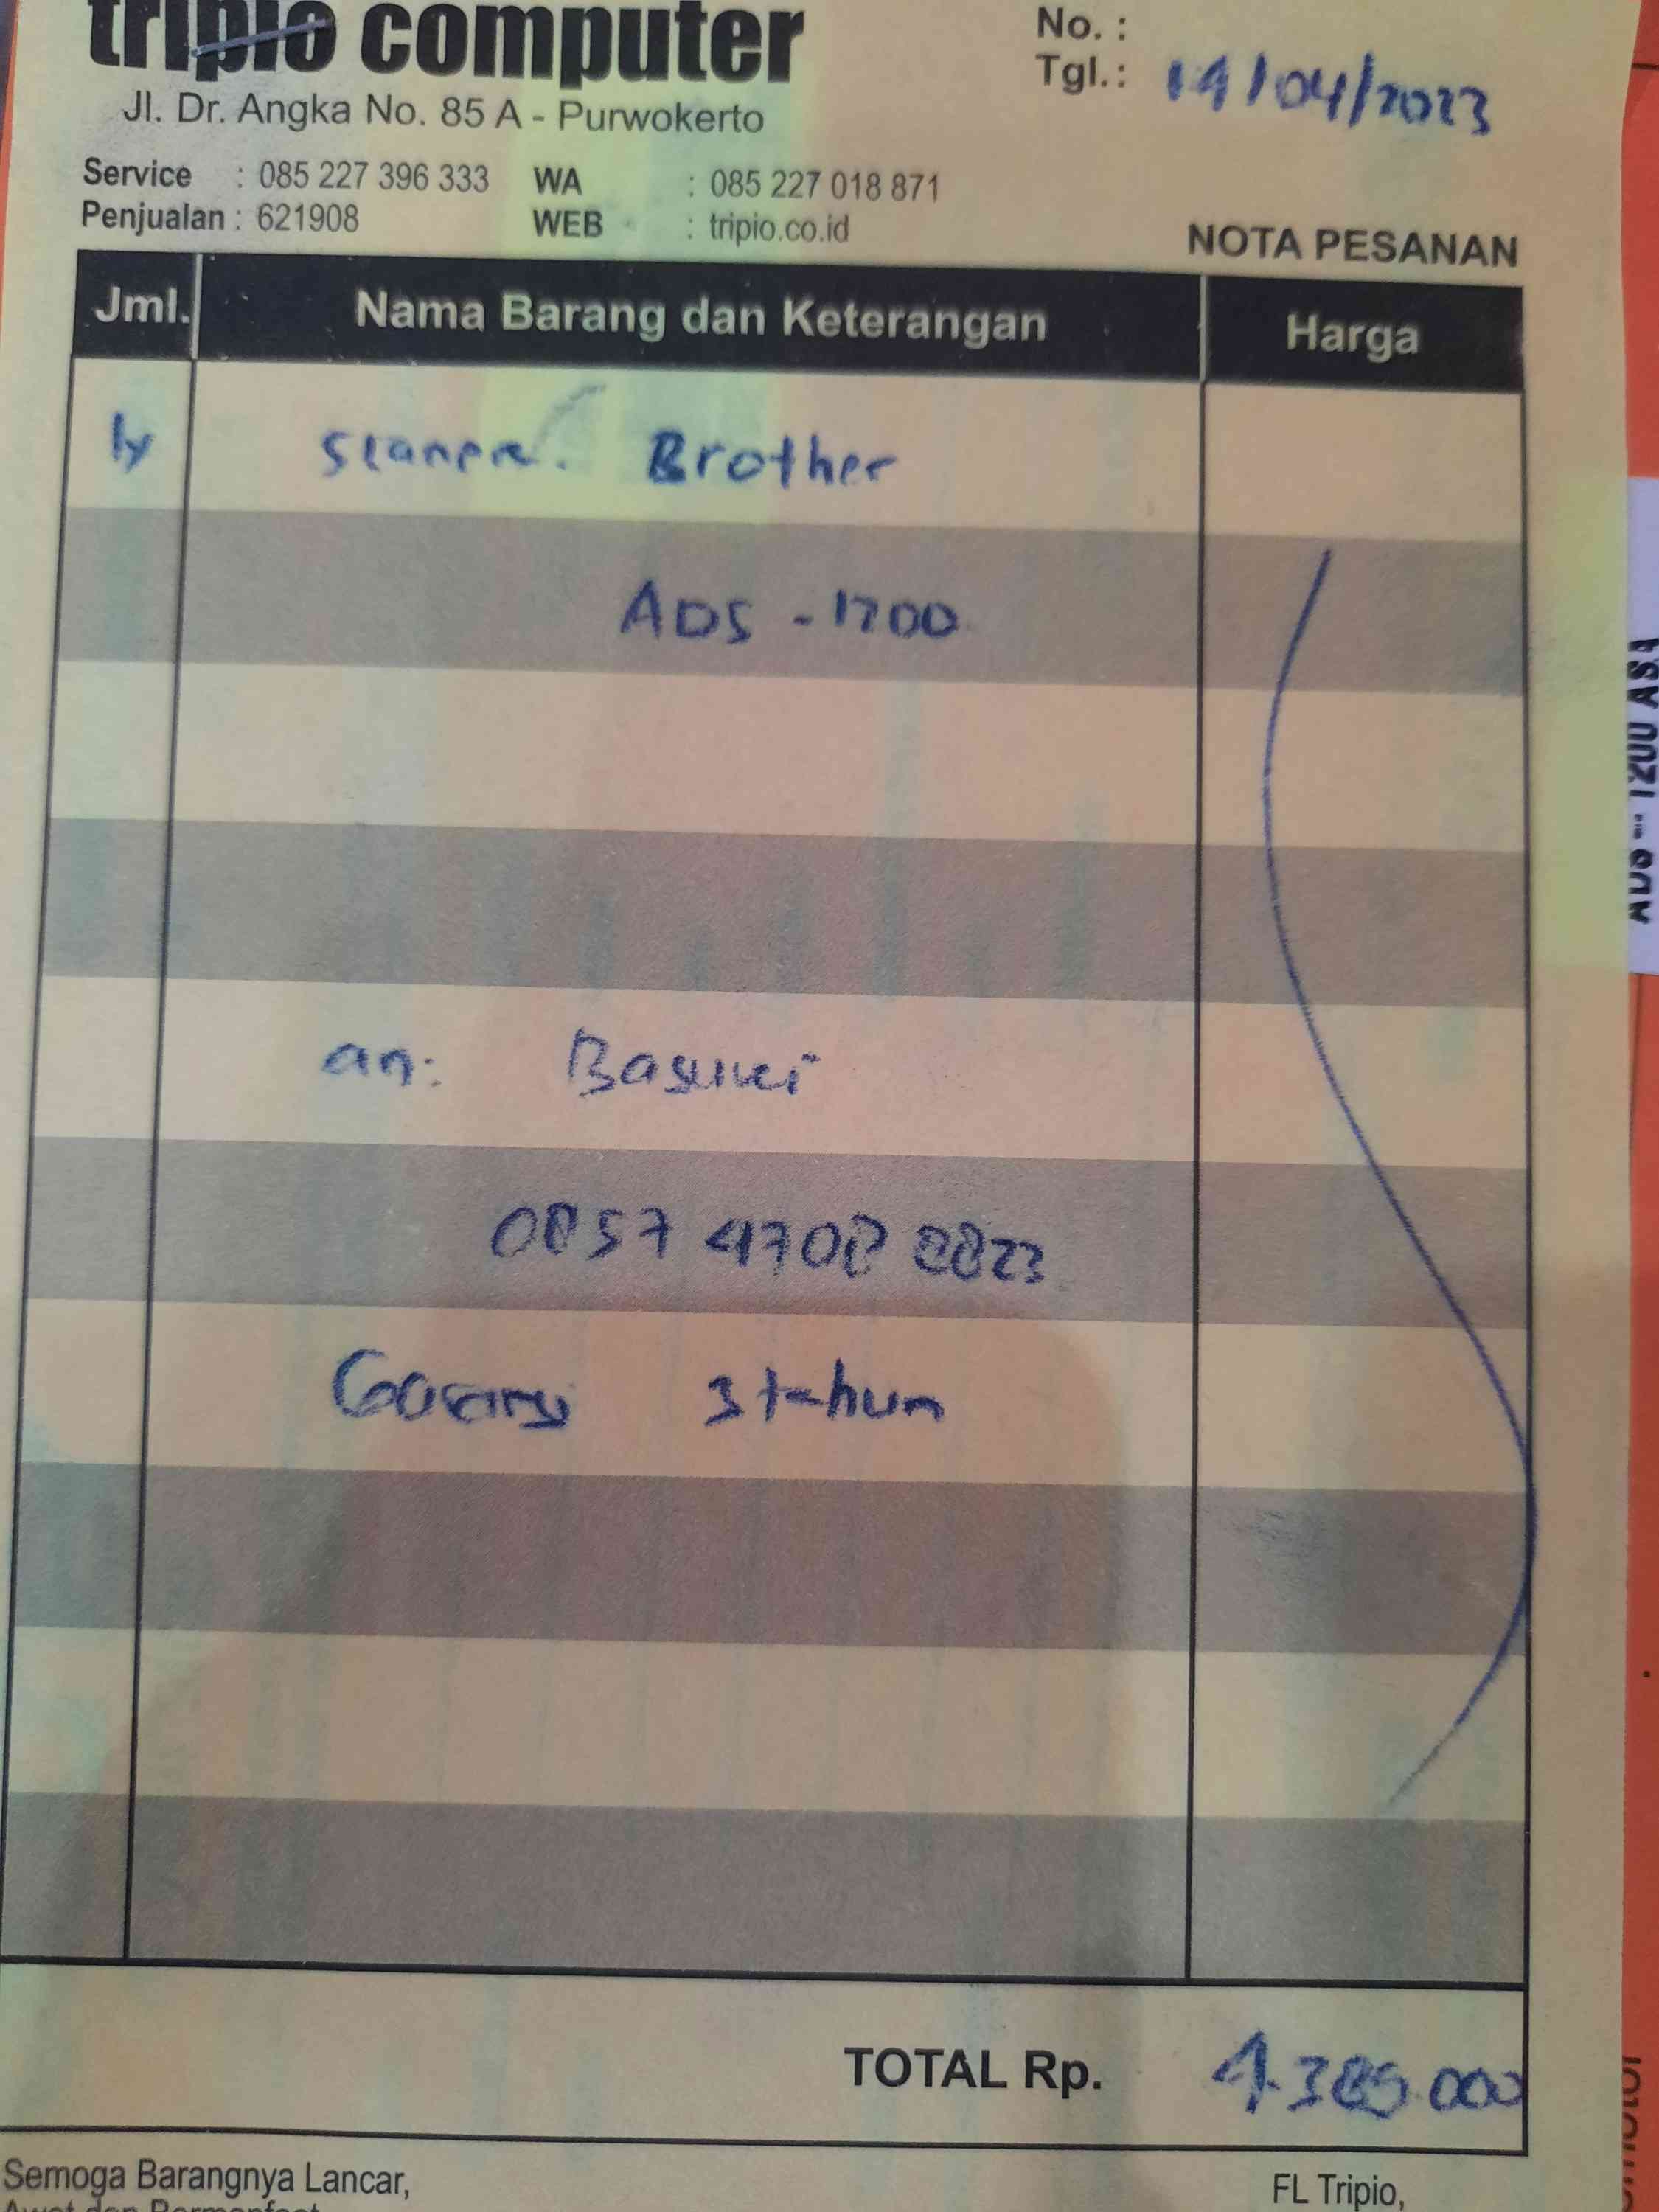 tripio computer
No. :
Tgl.: 14/04/2023
Jl. Dr. Angka No. 85 A - Purwokerto
Service : 085 227 396 333 WA : 085 227 018 871
Penjualan : 621908 WEB : tripio.co.id
NOTA PESANAN
Jml. Nama Barang dan Keterangan Harga
Brother
ADS - 1200
an: Basuki
0857 4708 8823
3 tahun
TOTAL Rp. 4.385.000
Semoga Barangnya Lancar,
FL Tripio,